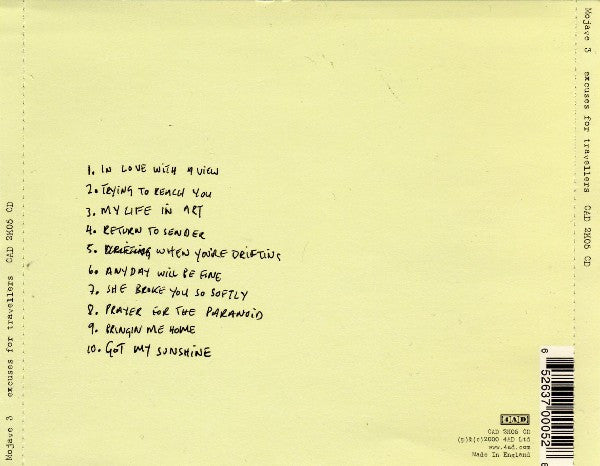 1. IN LOVE WITH A VIEW
2. TRYING TO REACH YOU
3. MY LIFE IN ART
4. RETURN TO SENDER
5. WHEN YOU'RE DRIFTING
6. ANYDAY WILL BE FINE
7. SHE BROKE YOU SO SOFTLY
8. PRAYER FOR THE PARANOID
9. BRINGIN ME HOME
10. GOT MY SUNSHINE
Mojave 3 excuses for travellers CAD 2K05 CD
Mojave 3 excuses for travellers CAD 2K05 CD
6 52637 00052 6
4AD
CAD 2K05 CD
(p)&(c)2000 4AD Ltd
www.4ad.com
Made In England